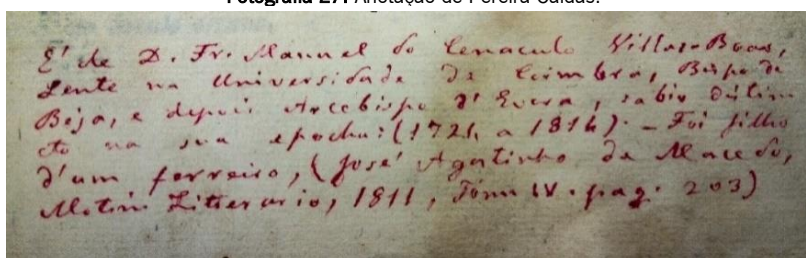 Fotografia 27: Anotação de Pereira Caldas.
E' de D. Fr. Manuel do Cenaculo Villas-Boas,
Lente na Universidade de Coimbra, Bispo de
Beja, e depois Arcebispo d'Evora, sabio distin
cto na sua epocha: (1724 a 1814). — Foi filho
d'um ferreiro, (José Agostinho de Macedo,
Motim Litterario, 1811, Tomo IV. pag. 203)